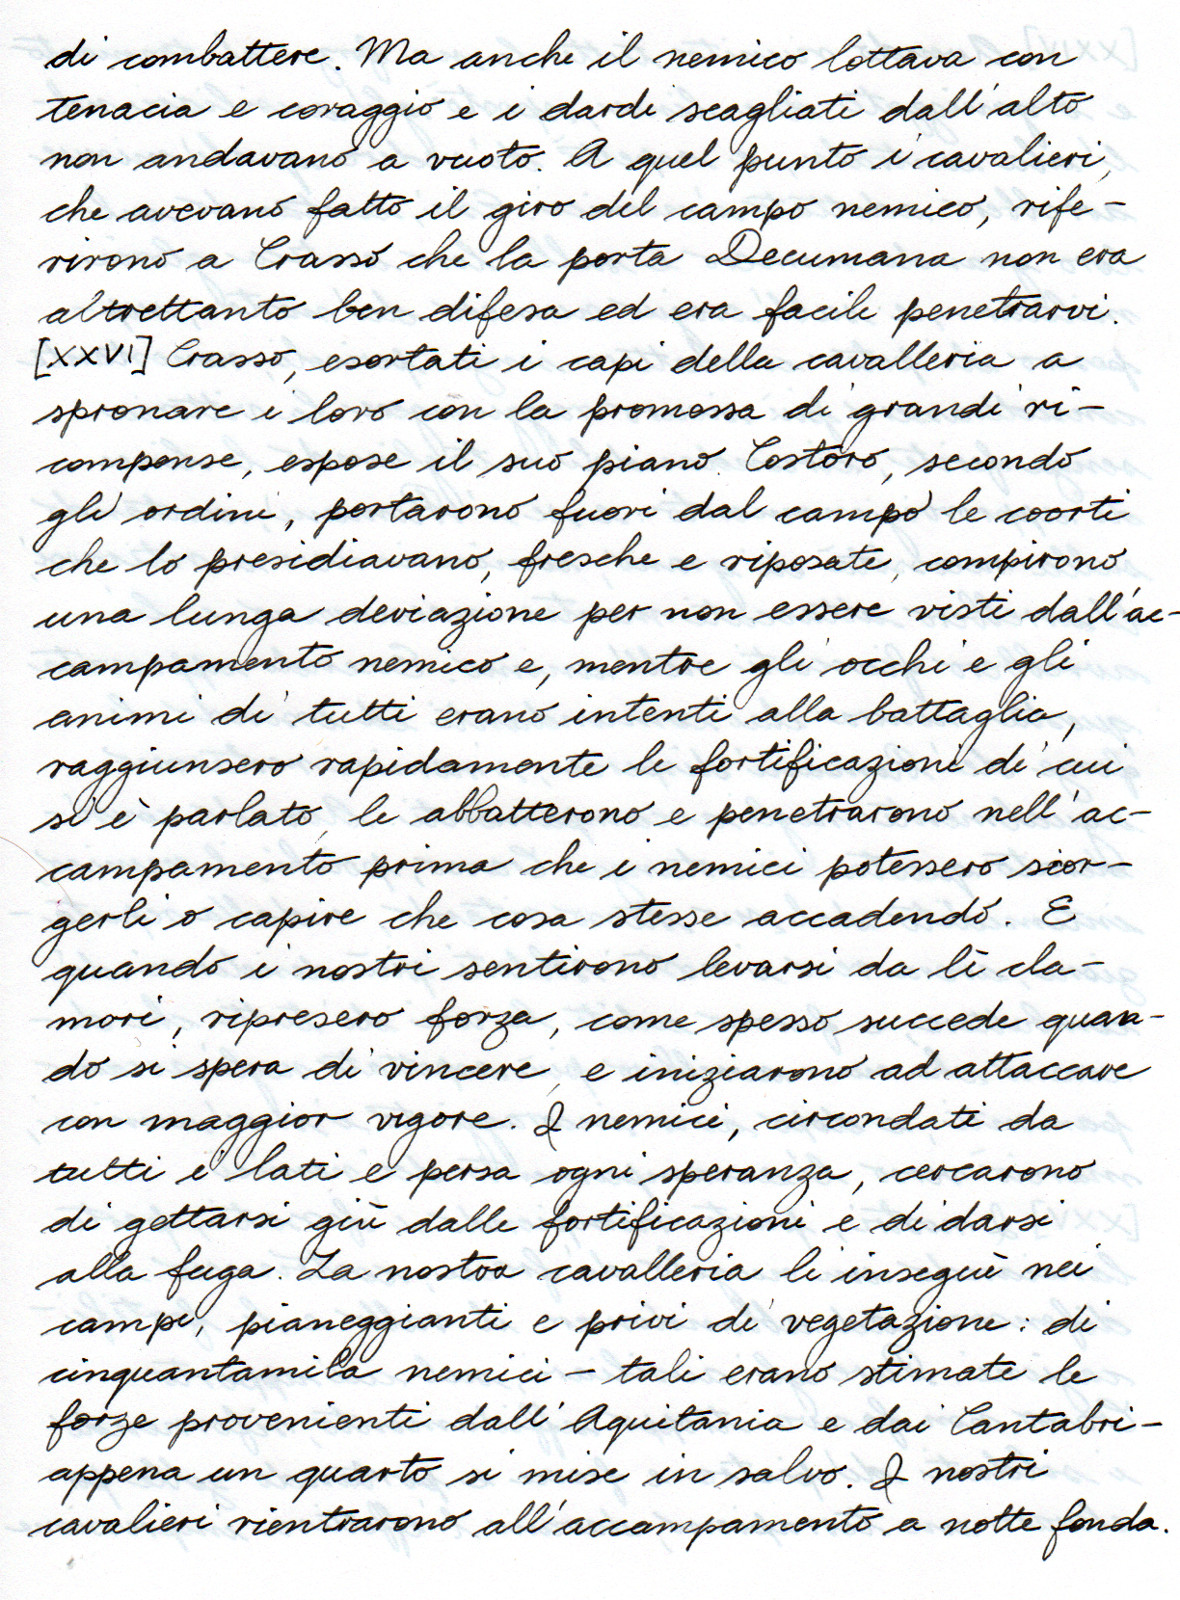 di combattere. Ma anche il nemico lottava con
tenacia e coraggio e i dardi scagliati dall'alto
non andavano a vuoto. A quel punto i cavalieri,
che avevano fatto il giro del campo nemico, rife-
rirono a Crasso che la porta Decumana non era
altrettanto ben difesa ed era facile penetrarvi.
[XXVI] Crasso, esortati i capi della cavalleria a
spronare i loro con la promessa di grandi ri-
compense, espose il suo piano. Costoro, secondo
gli ordini, portarono fuori dal campo le coorti
che lo presidiavano, fresche e riposate, compirono
una lunga deviazione per non essere visti dall'ac-
campamento nemico e, mentre gli occhi e gli
animi di tutti erano intenti alla battaglia,
raggiunsero rapidamente le fortificazioni di cui
si è parlato, le abbatterono e penetrarono nell'ac-
campamento prima che i nemici potessero scor-
gerli o capire che cosa stesse accadendo. E
quando i nostri sentirono levarsi da lì cla-
mori, ripresero forza, come spesso succede quan-
do si spera di vincere, e iniziarono ad attaccare
con maggior vigore. I nemici, circondati da
tutti i lati e persa ogni speranza, cercarono
di gettarsi giù dalle fortificazioni e di darsi
alla fuga. La nostra cavalleria li inseguì nei
campi, pianeggianti e privi di vegetazione: di
cinquantamila nemici - tali erano stimate le
forze provenienti dall'Aquitania e dai Cantabri -
appena un quarto si mise in salvo. I nostri
cavalieri rientrarono all'accampamento a notte fonda.